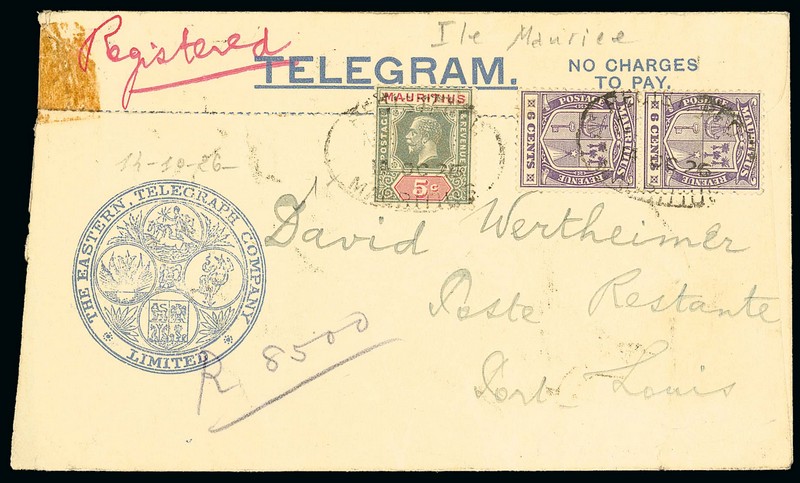 Registered
Ile Maurice
TELEGRAM.
NO CHARGES
TO PAY.
MAURITIUS
POSTAGE
& REVENUE
5c
POSTAGE
MAURITIUS
REVENUE
6 CENTS
POSTAGE
MAURITIUS
REVENUE
6 CENTS
MAURITIUS
14-10-26-
THE EASTERN TELEGRAPH COMPANY
LIMITED
David Wertheimer
Poste Restante
Port Louis
R 8500